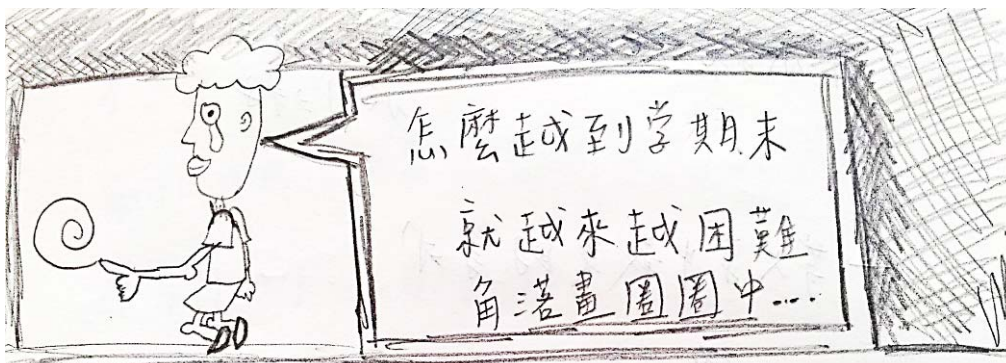 怎麼越到学期末
就越來越困難
角落畫圈圈中....